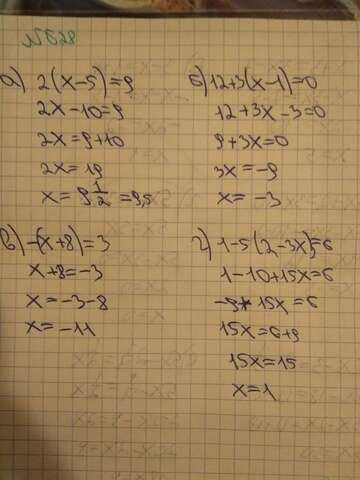 №628
а) 2(x-5)=9
2x-10=9
2x=9+10
2x=19
x=9 1/2=9,5
б) 12+3(x-1)=0
12+3x-3=0
9+3x=0
3x=-9
x=-3
в) -(x+8)=3
x+8=-3
x=-3-8
x=-11
г) 1-5(2-3x)=6
1-10+15x=6
-9+15x=6
15x=6+9
15x=15
x=1